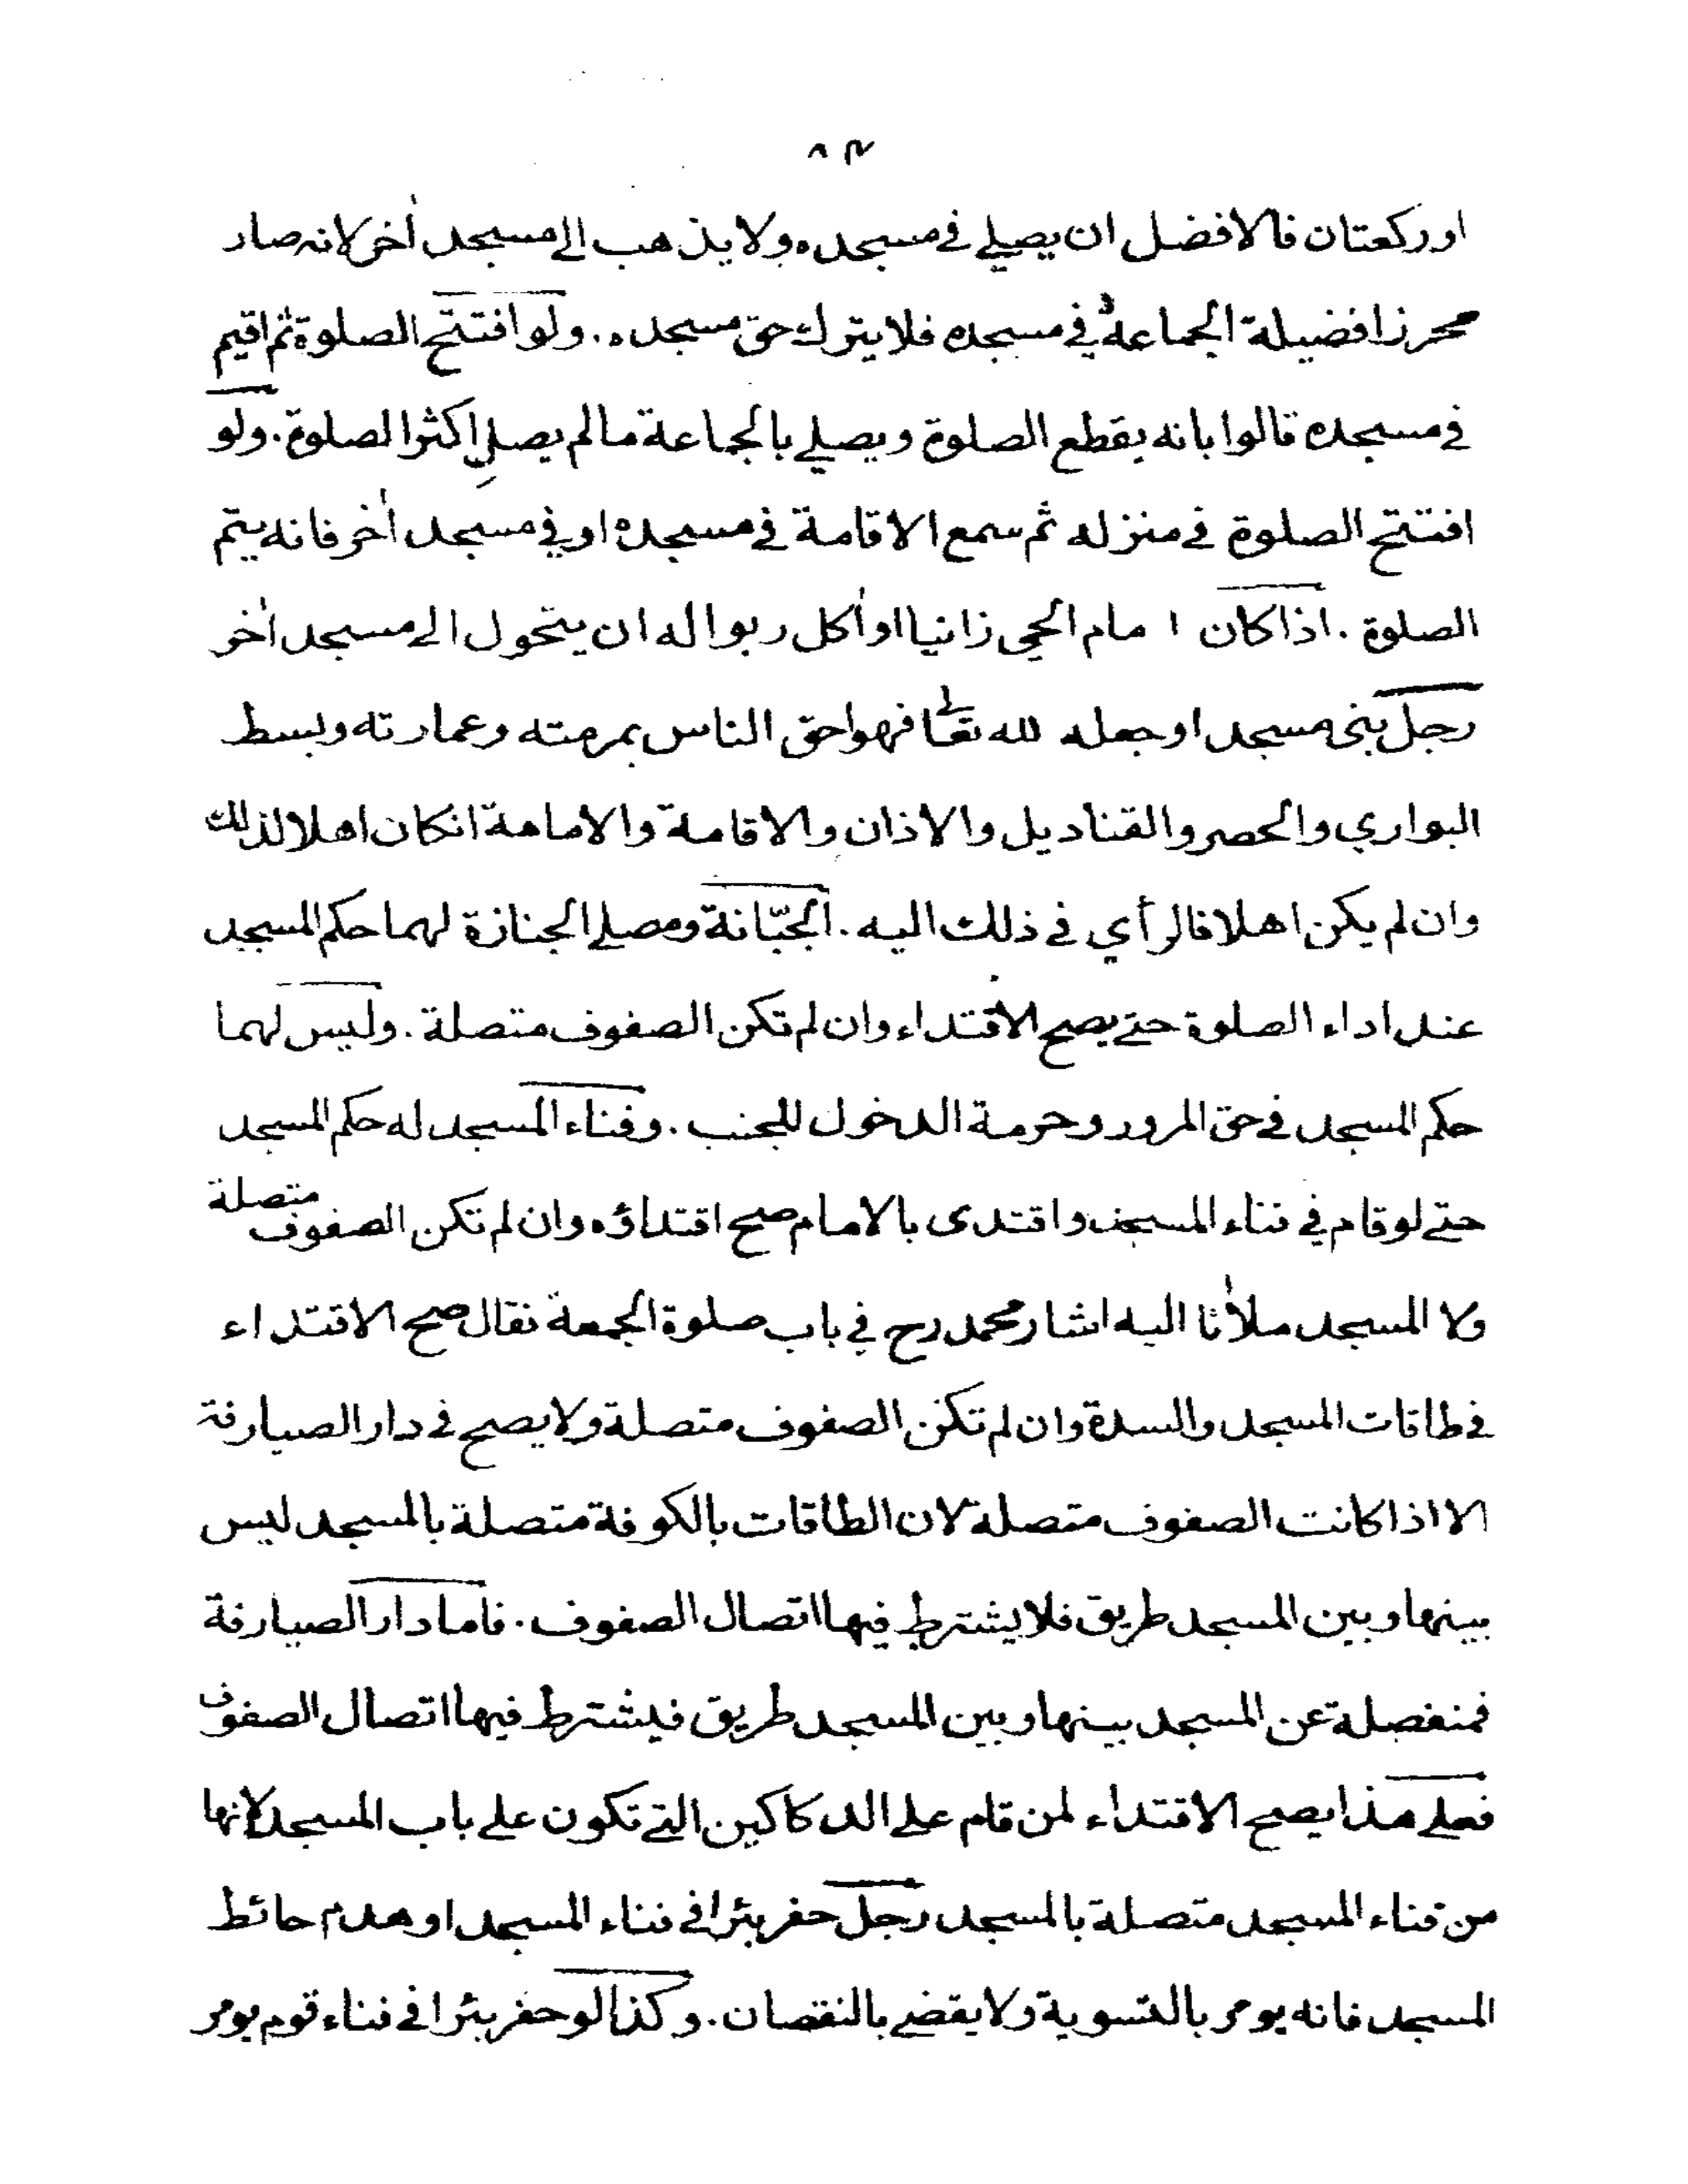 ٨٣
او ركعتان فالافضل ان يصلي في مسجده ولا يذهب الى مسجد أخر لانه صار
محرزا فضيلة الجماعة في مسجده فلا يترك حق مسجده . ولو افتتح الصلوة ثم اقيم
في مسجده قالوا بانه يقطع الصلوة ويصلي بالجماعة ما لم يصل اكثر الصلوة . ولو
افتتح الصلوة في منزله ثم سمع الاقامة في مسجده او في مسجد أخر فانه يتم
الصلوة . اذا كان امام الحي زانيا او أكل ربوا له ان يتحول الى مسجد أخر
رجل بنى مسجدا وجعله لله تعالى فهو احق الناس بمرمته وعمارته وبسط
البواري والحصر والقناديل والاذان والاقامة والامامة انكان اهلا لذلك
وان لم يكن اهلا فالرأي في ذلك اليه . الجبّانة ومصلى الجنازة لهما حكم المسجد
عند اداء الصلوة حتى يصح الاقتداء وان لم تكن الصفوف متصلة . وليس لهما
حكم المسجد في حق المرور وحرمة الدخول للجنب . وفناء المسجد له حكم المسجد
حتى لو قام في فناء المسجد واقتدى بالامام صح اقتداؤه وان لم تكن الصفوف متصلة
ولا المسجد ملأنا اليه اشار محمد رح في باب صلوة الجمعة فقال صح الاقتداء
في طاقات المسجد والسدة وان لم تكن الصفوف متصلة ولا يصح في دار الصيارفة
الا اذا كانت الصفوف متصلة لان الطاقات بالكوفة متصلة بالمسجد ليس
بينها وبين المسجد طريق فلا يشترط فيها اتصال الصفوف . فاما دار الصيارفة
فمنفصلة عن المسجد بينها وبين المسجد طريق فيشترط فيها اتصال الصفوف
فعلى هذا يصح الاقتداء لمن قام على الدكاكين التي تكون على باب المسجد لانها
من فناء المسجد متصلة بالمسجد رجل حفر بئرا في فناء المسجد او هدم حائط
المسجد فانه يومر بالتسوية ولا يقضى بالنقصان . وكذا لو حفر بئرا في فناء قوم يومر